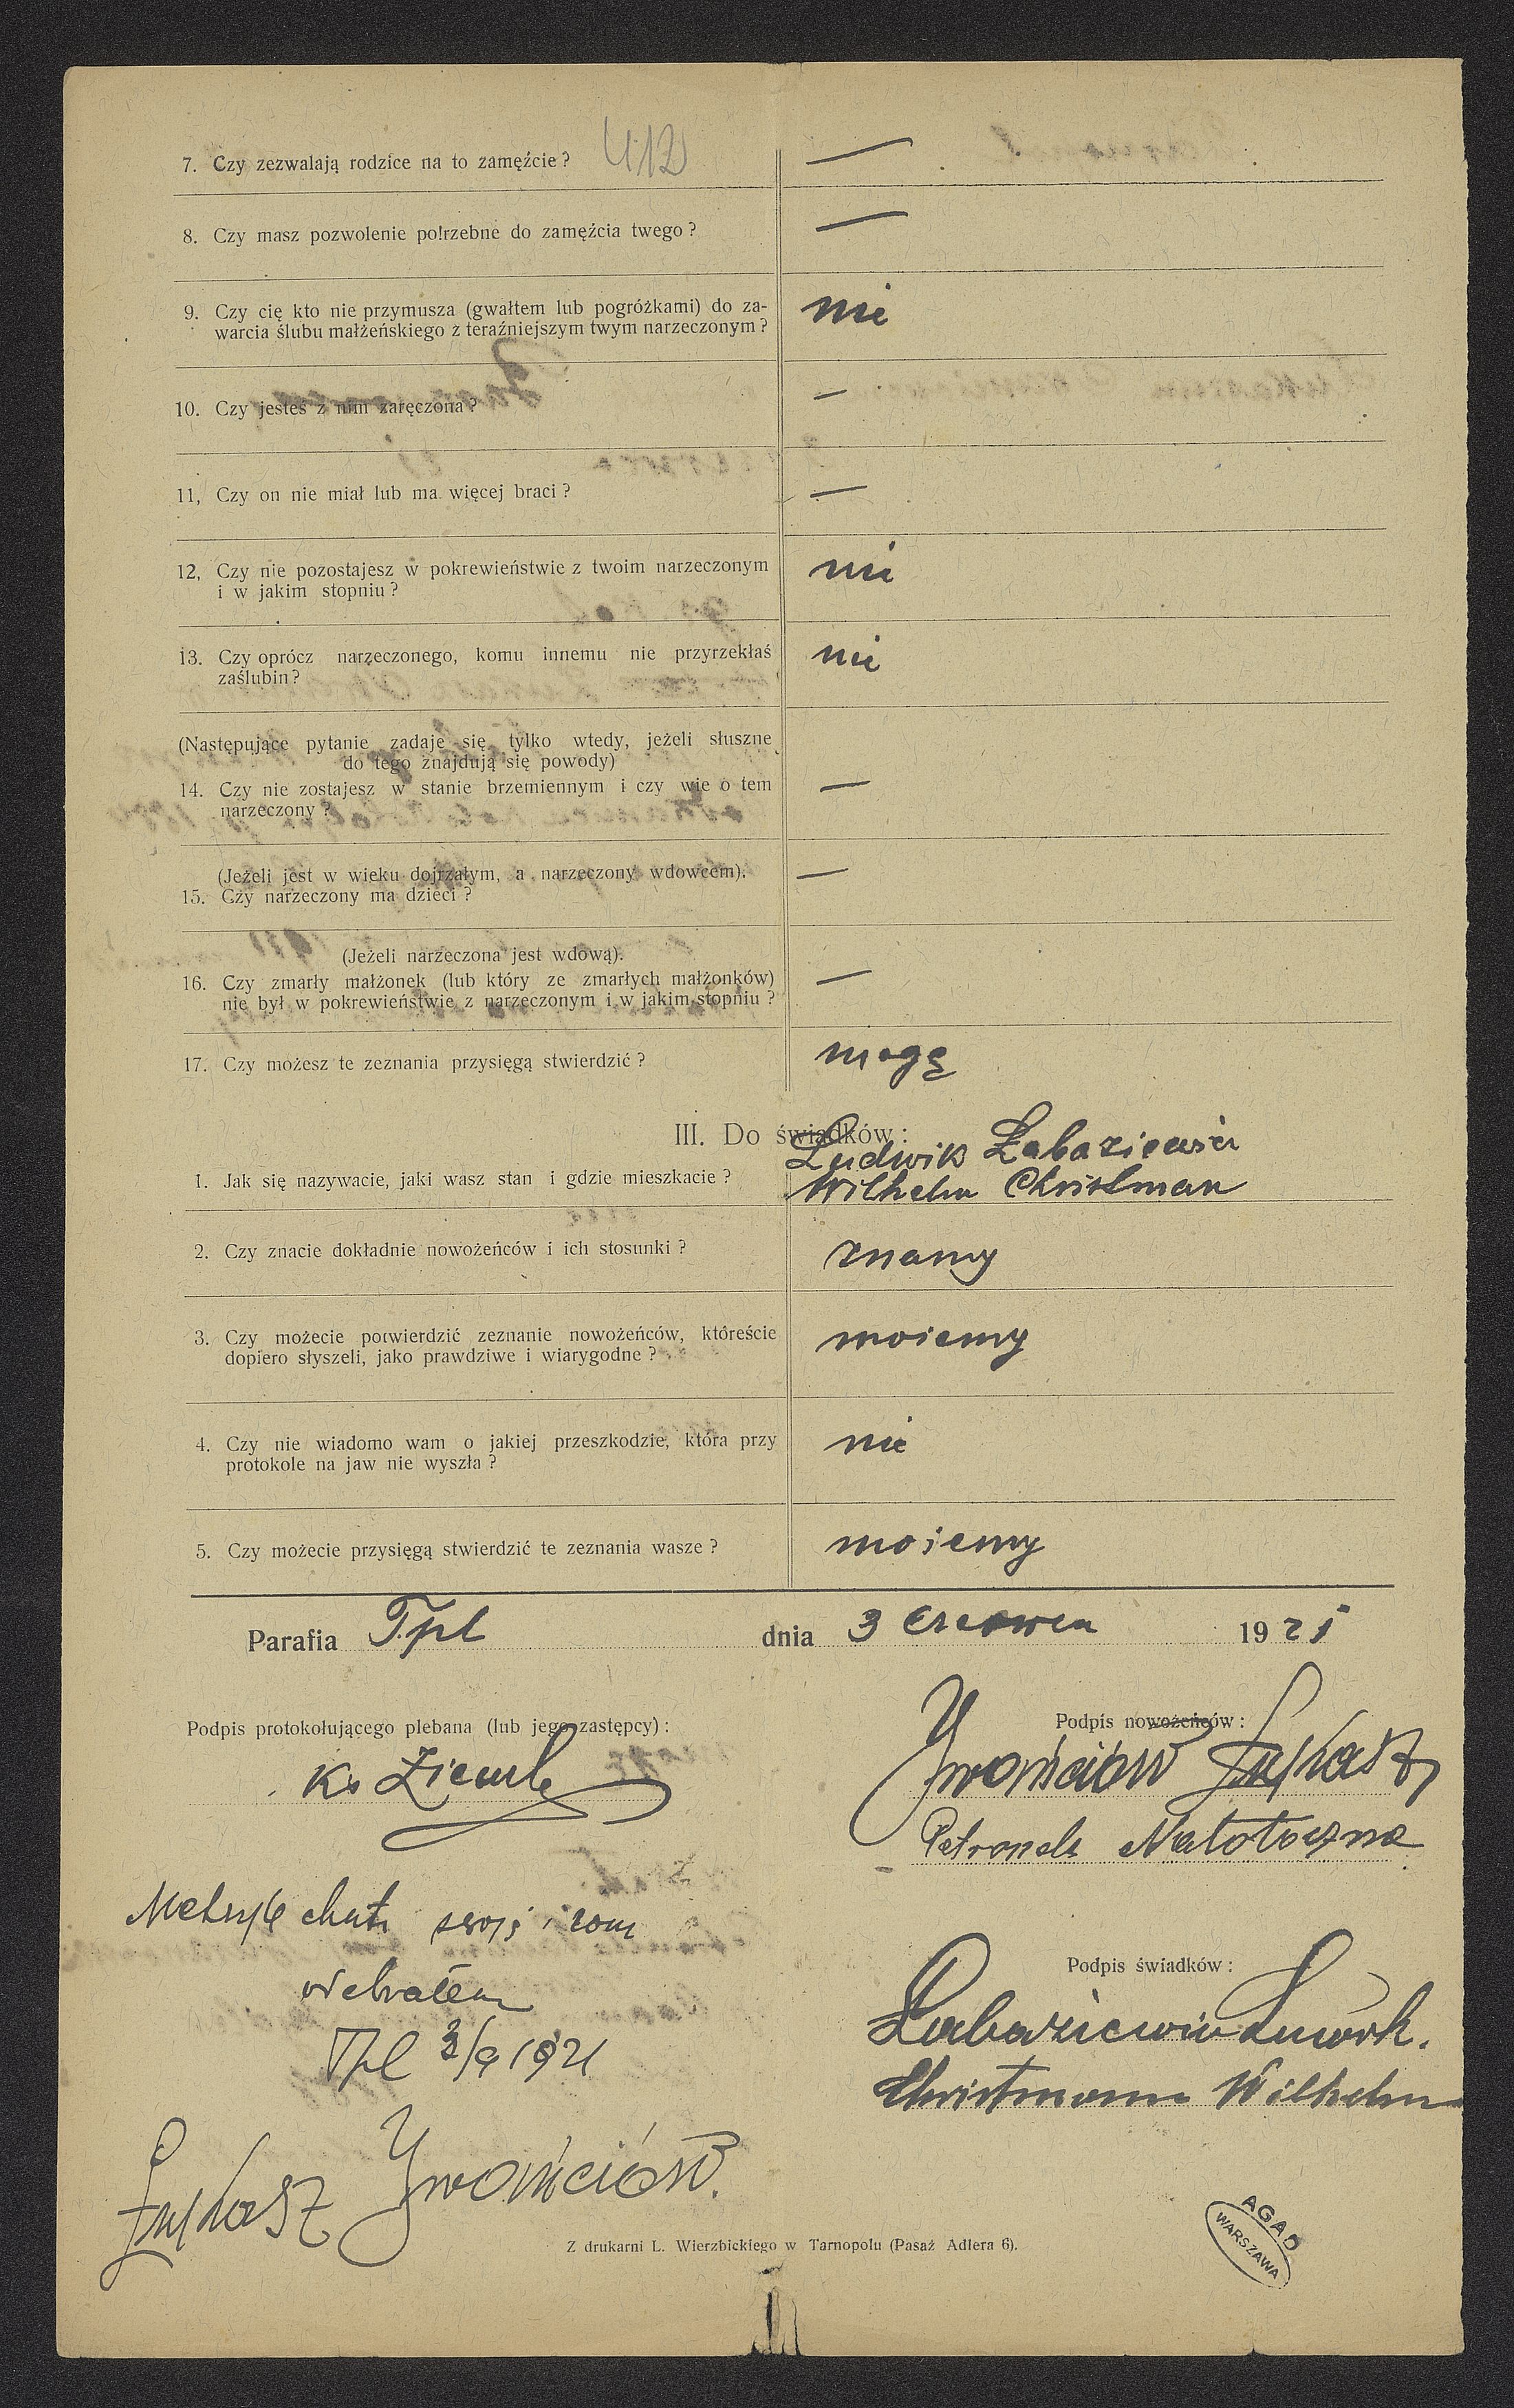 412
7. Czy zezwalają rodzice na to zamęźcie? —
8. Czy masz pozwolenie potrzebne do zamęźcia twego? —
9. Czy cię kto nie przymusza (gwałtem lub pogróżkami) do za-
warcia ślubu małżeńskiego z teraźniejszym twym narzeczonym? nie
10. Czy jesteś z nim zaręczona? —
11, Czy on nie miał lub ma więcej braci? —
12, Czy nie pozostajesz w pokrewieństwie z twoim narzeczonym
i w jakim stopniu? nie
13. Czy oprócz narzeczonego, komu innemu nie przyrzekłaś
zaślubin? nie
(Następujące pytanie zadaje się tylko wtedy, jeżeli słuszne
do tego znajdują się powody)
14. Czy nie zostajesz w stanie brzemiennym i czy wie o tem
narzeczony? —
(Jeżeli jest w wieku dojrzałym, a narzeczony wdowcem).
15. Czy narzeczony ma dzieci? —
(Jeżeli narzeczona jest wdową).
16. Czy zmarły małżonek (lub który ze zmarłych małżonków)
nie był w pokrewieństwie z narzeczonym i w jakim stopniu? —
17. Czy możesz te zeznania przysięgą stwierdzić? mogę
III. Do świadków:
1. Jak się nazywacie, jaki wasz stan i gdzie mieszkacie? Ludwik Łabaziewicz
Wilhelm Christman
2. Czy znacie dokładnie nowożeńców i ich stosunki? znamy
3. Czy możecie potwierdzić zeznanie nowożeńców, któreście
dopiero słyszeli, jako prawdziwe i wiarygodne? możemy
4. Czy nie wiadomo wam o jakiej przeszkodzie, która przy
protokole na jaw nie wyszła? nie
5. Czy możecie przysięgą stwierdzić te zeznania wasze? możemy
Parafia Tpl dnia 3 czerwca 1921
Podpis protokołującego plebana (lub jego zastępcy):
Ks
Podpis nowożeńców:
Iwońciów Łukasz
Petronela
Metrykę chrztu swoją i żony
odebrałem
Tpl 3/9 1921
Łukasz Iwońciów.
Podpis świadków:
Łabaziewicz Ludwik.
Christmann Wilhelm
Z drukarni L. Wierzbickiego w Tarnopolu (Pasaż Adlera 6).
AGAD
WARSZAWA